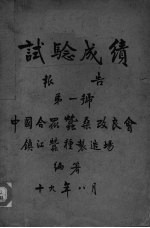 試驗成績
報告
第一號
中國合眾蠶桑改良會
鎮江蠶種製造場
編著
十九年八月